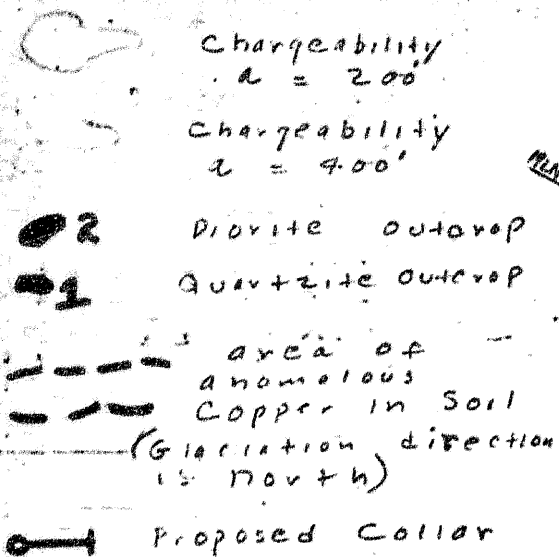 Chargeability
a = 200'
Chargeability
a = 400'
2 Diorite outcrop
1 Quartzite outcrop
area of
anomalous
Copper in Soil
(Glaciation direction
is north)
Proposed Collar